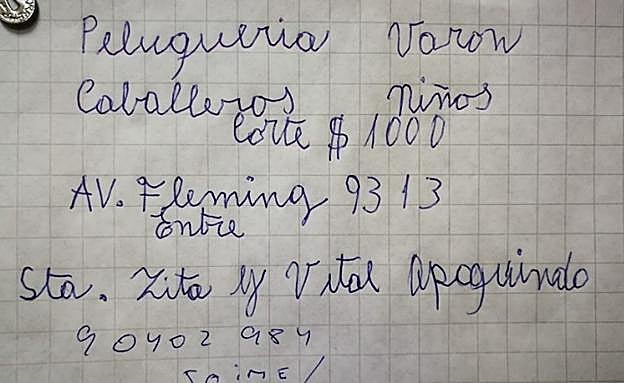 Peluqueria Varon
Caballeros Niños
Corte $ 1000
AV. Fleming 9313
Entre
Sta. Zita y Vital Apoquindo
90402984
JAIME/